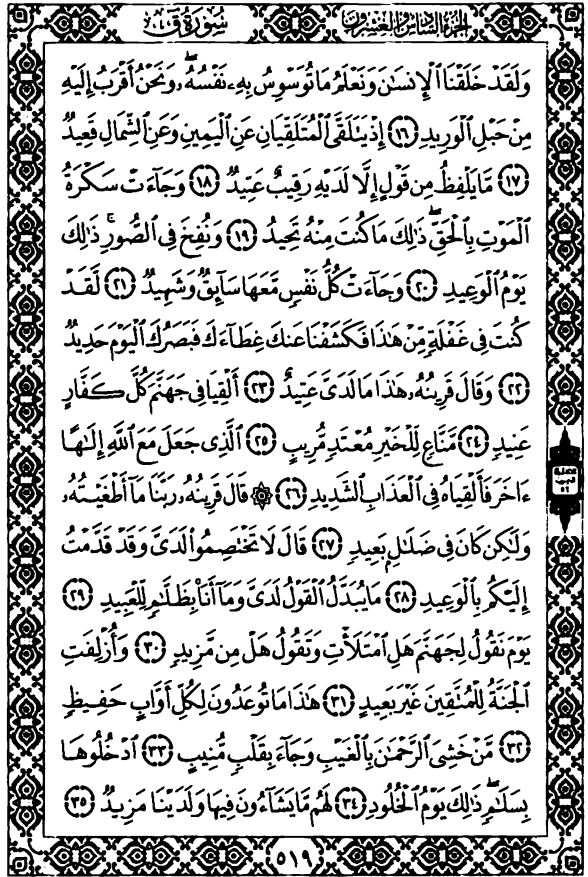 سُورَةُ ق الجزء السادس والعشرون
وَلَقَدْ خَلَقْنَا ٱلْإِنسَٰنَ وَنَعْلَمُ مَا تُوَسْوِسُ بِهِۦ نَفْسُهُۥۖ وَنَحْنُ أَقْرَبُ إِلَيْهِ
مِنْ حَبْلِ ٱلْوَرِيدِ ١٦ إِذْ يَتَلَقَّى ٱلْمُتَلَقِّيَانِ عَنِ ٱلْيَمِينِ وَعَنِ ٱلشِّمَالِ قَعِيدٌ
١٧ مَّا يَلْفِظُ مِن قَوْلٍ إِلَّا لَدَيْهِ رَقِيبٌ عَتِيدٌ ١٨ وَجَآءَتْ سَكْرَةُ
ٱلْمَوْتِ بِٱلْحَقِّۖ ذَٰلِكَ مَا كُنتَ مِنْهُ تَحِيدُ ١٩ وَنُفِخَ فِى ٱلصُّورِۚ ذَٰلِكَ
يَوْمُ ٱلْوَعِيدِ ٢٠ وَجَآءَتْ كُلُّ نَفْسٍ مَّعَهَا سَآئِقٌ وَشَهِيدٌ ٢١ لَّقَدْ
كُنتَ فِى غَفْلَةٍ مِّنْ هَٰذَا فَكَشَفْنَا عَنكَ غِطَآءَكَ فَبَصَرُكَ ٱلْيَوْمَ حَدِيدٌ
٢٢ وَقَالَ قَرِينُهُۥ هَٰذَا مَا لَدَىَّ عَتِيدٌ ٢٣ أَلْقِيَا فِى جَهَنَّمَ كُلَّ كَفَّارٍ
عَنِيدٍ ٢٤ مَّنَّاعٍ لِّلْخَيْرِ مُعْتَدٍ مُّرِيبٍ ٢٥ ٱلَّذِى جَعَلَ مَعَ ٱللَّهِ إِلَٰهًا
ءَاخَرَ فَأَلْقِيَاهُ فِى ٱلْعَذَابِ ٱلشَّدِيدِ ٢٦ ۞ قَالَ قَرِينُهُۥ رَبَّنَا مَآ أَطْغَيْتُهُۥ
وَلَٰكِن كَانَ فِى ضَلَٰلٍۭ بَعِيدٍ ٢٧ قَالَ لَا تَخْتَصِمُوا۟ لَدَىَّ وَقَدْ قَدَّمْتُ
إِلَيْكُم بِٱلْوَعِيدِ ٢٨ مَا يُبَدَّلُ ٱلْقَوْلُ لَدَىَّ وَمَآ أَنَا۠ بِظَلَّٰمٍ لِّلْعَبِيدِ ٢٩
يَوْمَ نَقُولُ لِجَهَنَّمَ هَلِ ٱمْتَلَأْتِ وَتَقُولُ هَلْ مِن مَّزِيدٍ ٣٠ وَأُزْلِفَتِ
ٱلْجَنَّةُ لِلْمُتَّقِينَ غَيْرَ بَعِيدٍ ٣١ هَٰذَا مَا تُوعَدُونَ لِكُلِّ أَوَّابٍ حَفِيظٍ
٣٢ مَّنْ خَشِىَ ٱلرَّحْمَٰنَ بِٱلْغَيْبِ وَجَآءَ بِقَلْبٍ مُّنِيبٍ ٣٣ ٱدْخُلُوهَا
بِسَلَٰمٍۖ ذَٰلِكَ يَوْمُ ٱلْخُلُودِ ٣٤ لَهُم مَّا يَشَآءُونَ فِيهَا وَلَدَيْنَا مَزِيدٌ ٣٥
٥١٩